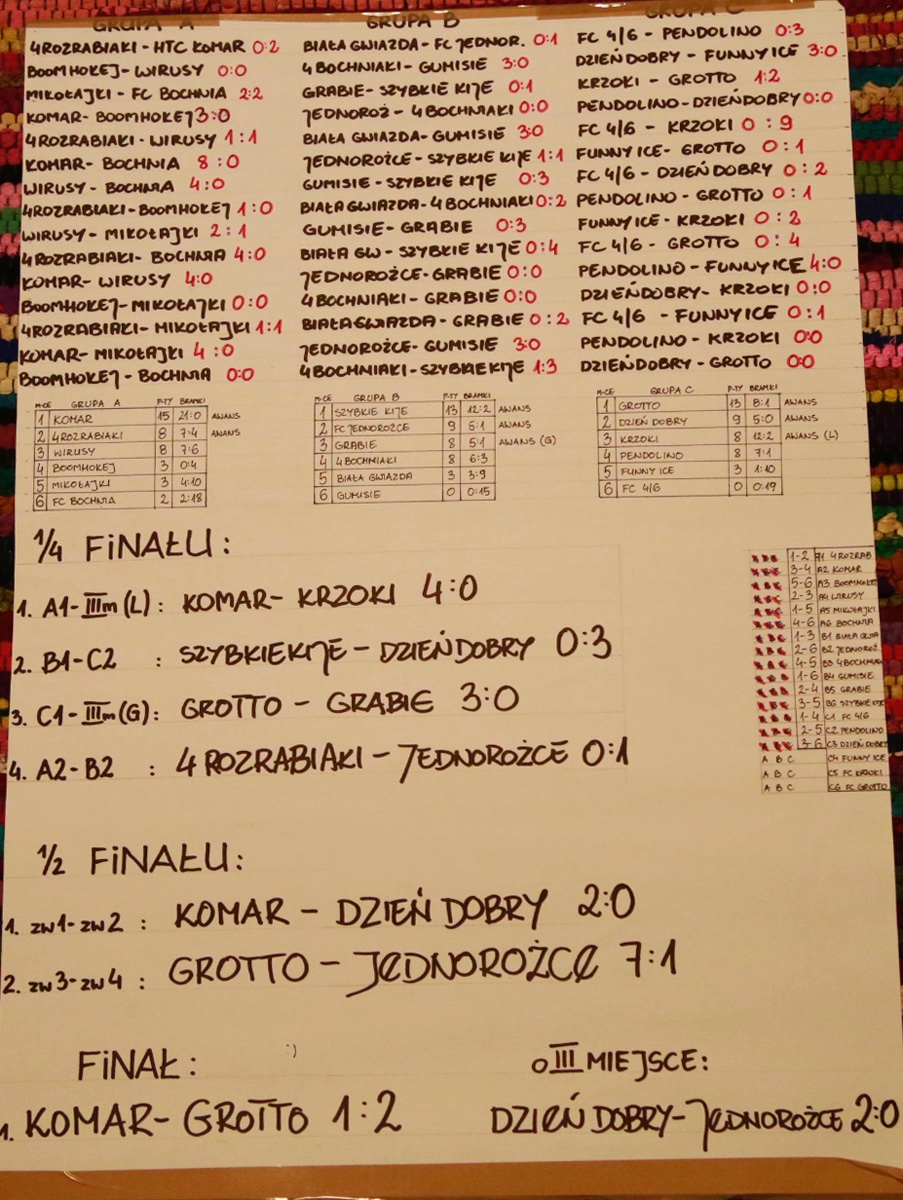 GRUPA A
4ROZRABIAKI - HTC KOMAR 0:2
BOOMHOKEJ - WIRUSY 0:0
MIKOŁAJKI - FC BOCHNIA 2:2
KOMAR - BOOMHOKEJ 3:0
4ROZRABIAKI - WIRUSY 1:1
KOMAR - BOCHNIA 8:0
WIRUSY - BOCHNIA 4:0
4ROZRABIAKI - BOOMHOKEJ 1:0
WIRUSY - MIKOŁAJKI 2:1
4ROZRABIAKI - BOCHNIA 4:0
KOMAR - WIRUSY 4:0
BOOMHOKEJ - MIKOŁAJKI 0:0
4ROZRABIAKI - MIKOŁAJKI 1:1
KOMAR - MIKOŁAJKI 4:0
BOOMHOKEJ - BOCHNIA 0:0
GRUPA B
BIAŁA GWIAZDA - FC JEDNOR. 0:1
4 BOCHNIAKI - GUMISIE 3:0
GRABIE - SZYBKIE KIJE 0:1
JEDNOROŻ - 4 BOCHNIAKI 0:0
BIAŁA GWIAZDA - GUMISIE 3:0
JEDNOROŻCE - SZYBKIE KIJE 1:1
GUMISIE - SZYBKIE KIJE 0:3
BIAŁA GWIAZDA - 4 BOCHNIAKI 0:2
GUMISIE - GRABIE 0:3
BIAŁA GW - SZYBKIE KIJE 0:4
JEDNOROŻCE - GRABIE 0:0
4 BOCHNIAKI - GRABIE 0:0
BIAŁA GWIAZDA - GRABIE 0:2
JEDNOROŻCE - GUMISIE 3:0
4 BOCHNIAKI - SZYBKIE KIJE 1:3
GRUPA C
FC 4/6 - PENDOLINO 0:3
DZIEŃ DOBRY - FUNNY ICE 3:0
KRZOKI - GROTTO 1:2
PENDOLINO - DZIEŃ DOBRY 0:0
FC 4/6 - KRZOKI 0:9
FUNNY ICE - GROTTO 0:1
FC 4/6 - DZIEŃ DOBRY 0:2
PENDOLINO - GROTTO 0:1
FUNNY ICE - KRZOKI 0:2
FC 4/6 - GROTTO 0:4
PENDOLINO - FUNNY ICE 4:0
DZIEŃ DOBRY - KRZOKI 0:0
FC 4/6 - FUNNY ICE 0:1
PENDOLINO - KRZOKI 0:0
DZIEŃ DOBRY - GROTTO 0:0
M-CE GRUPA A P-TY BRAMKI
1 KOMAR 15 21:0 AWANS
2 4ROZRABIAKI 8 7:4 AWANS
3 WIRUSY 8 7:6
4 BOOMHOKEJ 3 0:4
5 MIKOŁAJKI 3 4:10
6 FC BOCHNIA 2 2:18
M-CE GRUPA B P-TY BRAMKI
1 SZYBKIE KIJE 13 12:2 AWANS
2 FC JEDNOROŻCE 9 5:1 AWANS
3 GRABIE 8 5:1 AWANS (G)
4 4 BOCHNIAKI 8 6:3
5 BIAŁA GWIAZDA 3 3:9
6 GUMISIE 0 0:15
M-CE GRUPA C P-TY BRAMKI
1 GROTTO 13 8:1 AWANS
2 DZIEŃ DOBRY 9 5:0 AWANS
3 KRZOKI 8 12:2 AWANS (L)
4 PENDOLINO 8 7:1
5 FUNNY ICE 3 1:10
6 FC 4/6 0 0:19
1/4 FINAŁU:
1. A1 - IIIm (L) : KOMAR - KRZOKI 4:0
2. B1 - C2 : SZYBKIE KIJE - DZIEŃ DOBRY 0:3
3. C1 - IIIm (G) : GROTTO - GRABIE 3:0
4. A2 - B2 : 4 ROZRABIAKI - JEDNOROŻCE 0:1
1-2 A1 4ROZRAB
3-4 A2 KOMAR
5-6 A3 BOOMHOKEJ
2-3 A4 WIRUSY
1-5 A5 MIKOŁAJKI
4-6 A6 BOCHNIA
1-3 B1 BIAŁA GWIA
2-6 B2 JEDNOROŻ.
4-5 B3 4BOCHNIAK
1-6 B4 GUMISIE
2-4 B5 GRABIE
3-5 B6 SZYBKIE
1-4 C1 FC 4/6
2-5 C2 PENDOLINO
3-6 C3 DZIEŃ DOBRY
A B C C4 FUNNY ICE
A B C C5 FC KRZOKI
A B C C6 FC GROTTO
1/2 FINAŁU:
1. zw1 - zw2 : KOMAR - DZIEŃ DOBRY 2:0
2. zw3 - zw4 : GROTTO - JEDNOROŻCE 7:1
FINAŁ: :)
1. KOMAR - GROTTO 1:2
o III MIEJSCE:
DZIEŃ DOBRY - JEDNOROŻCE 2:0